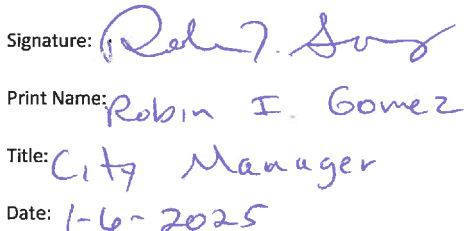 Signature:
Print Name: Robin I. Gomez
Title: City Manager
Date: 1-6-2025